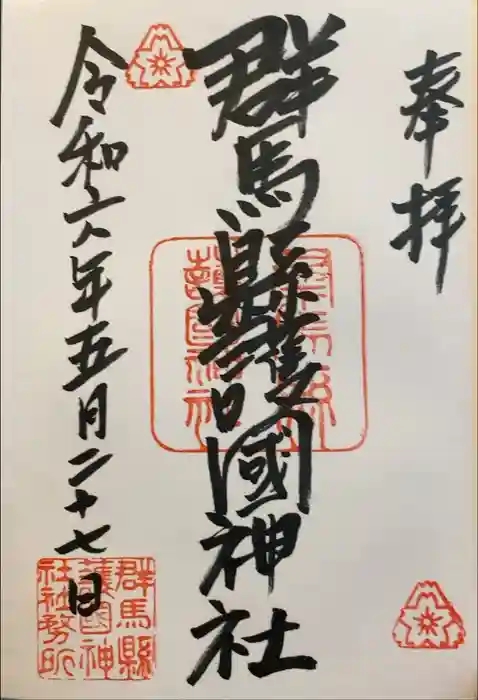 奉拝
群馬縣護國神社
群馬縣護國神社
令和六年五月二十七日
群馬縣
護國神
社社務所